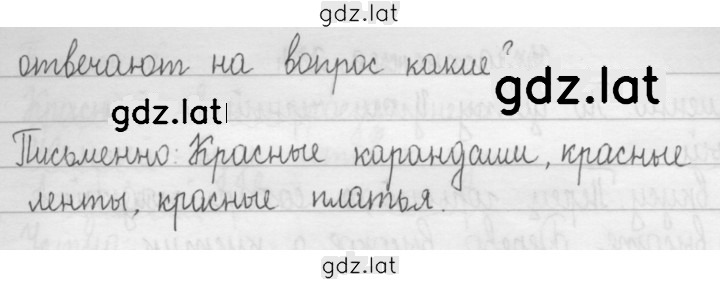 gdz.lat
отвечают на вопрос какие?
gdz.lat
gdz.lat
Письменно: Красные карандаши, красные
ленты, красные платья.
gdz.lat